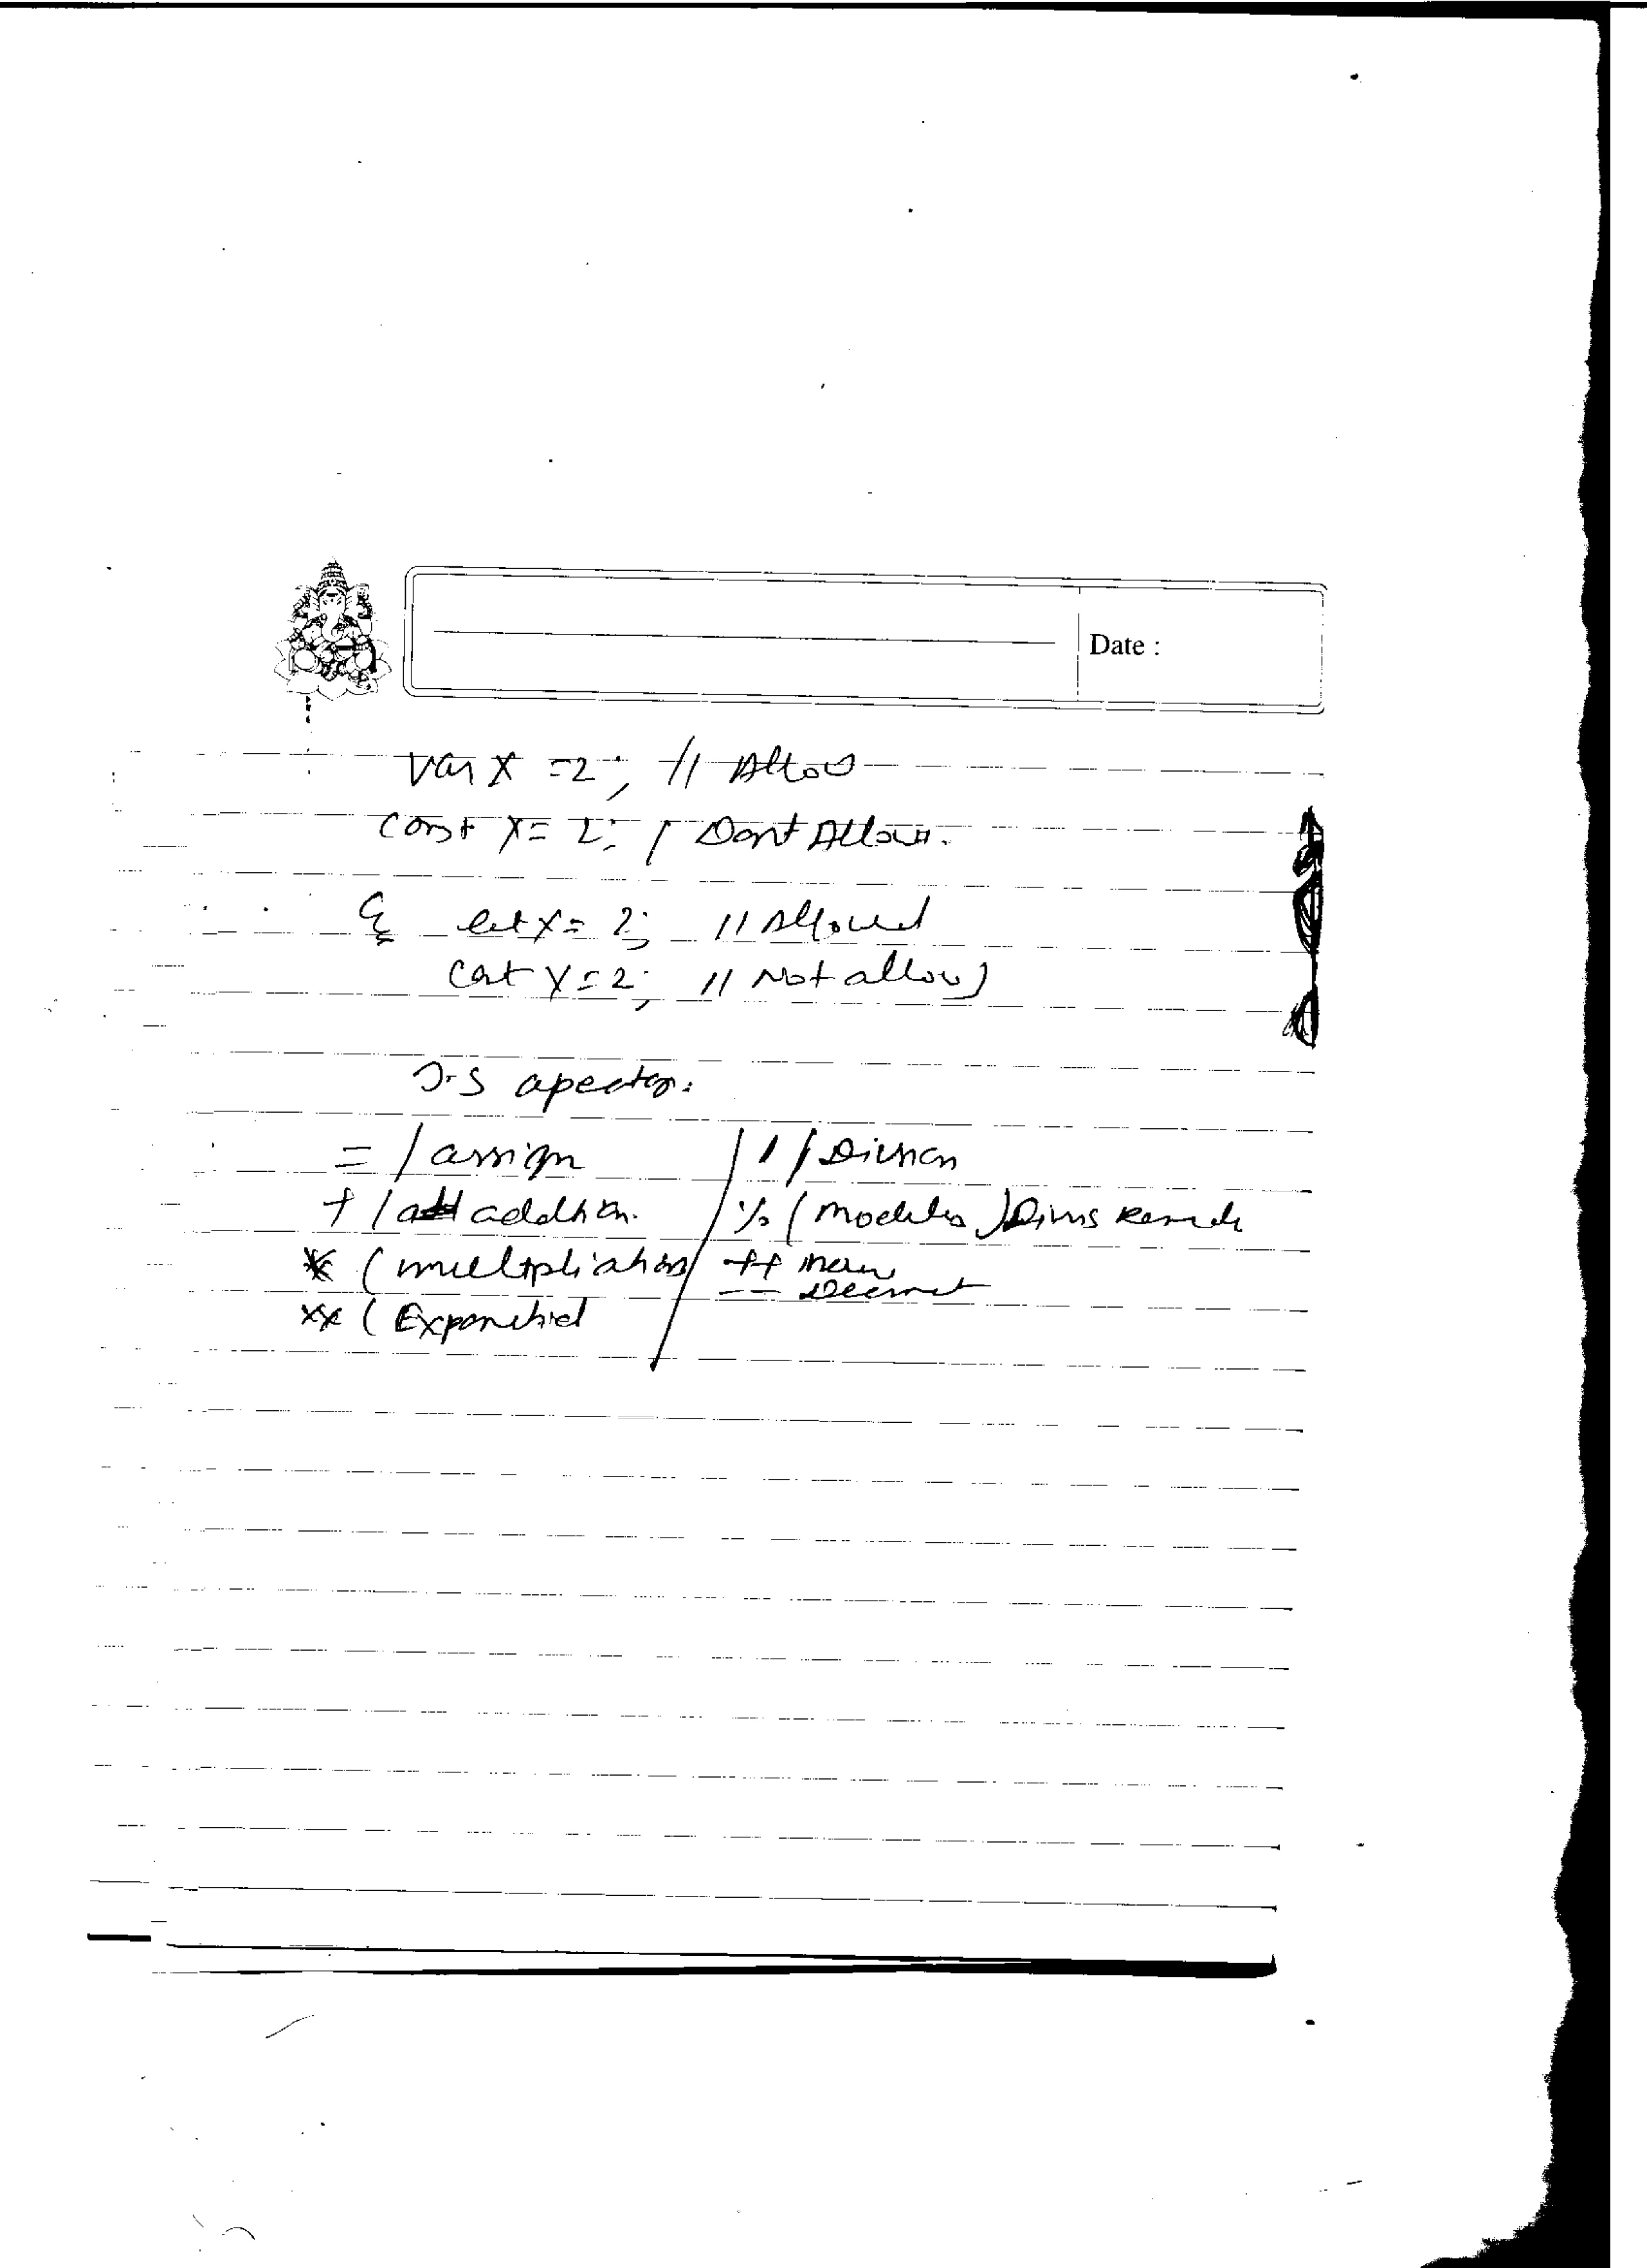 Date :
var x = 2; // Allow
const x = 2; / Dont Allow.
{ let x = 2; // Allowed
cost x = 2; // Not allow }
J.S opeator.
= / assign | / / Division
+ / addition. | % (modulus) Divis Remaide
* (multipliation / ++ incre
-- Decrmet
** ( Exponetial